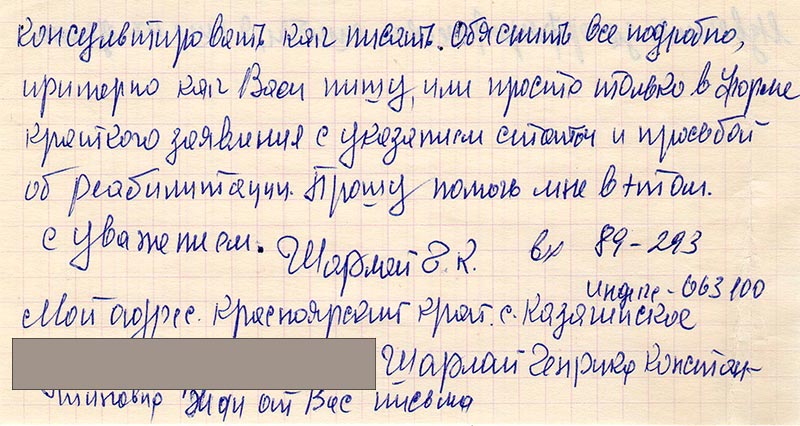 консультировать как писать. Объяснить все подробно,
примерно как Вам пишу, или просто только в форме
краткого заявления с указанием статьи и просьбой
об реабилитации. Прошу помочь мне в этом.
с уважением. Шарлай Г. К. вх 89-293
индекс - 663100
Мой адрес. Красноярский край. с. Казачинское
Шарлай Генриха Констан-
тиновна Жди от Вас письма